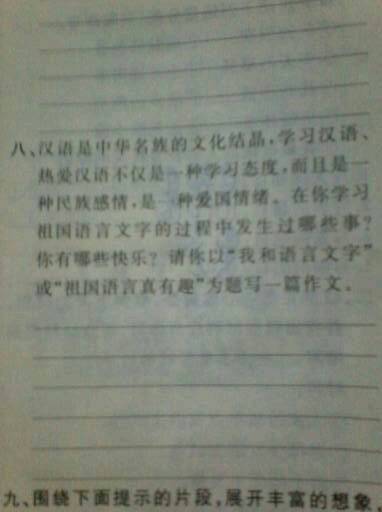 八、汉语是中华名族的文化结晶,学习汉语、
热爱汉语不仅是一种学习态度,而且是一
种民族感情,是一种爱国情绪。在你学习
祖国语言文字的过程中发生过哪些事?
你有哪些快乐?请你以“我和语言文字”
或“祖国语言真有趣”为题写一篇作文。
九、围绕下面提示的片段,展开丰富的想象,